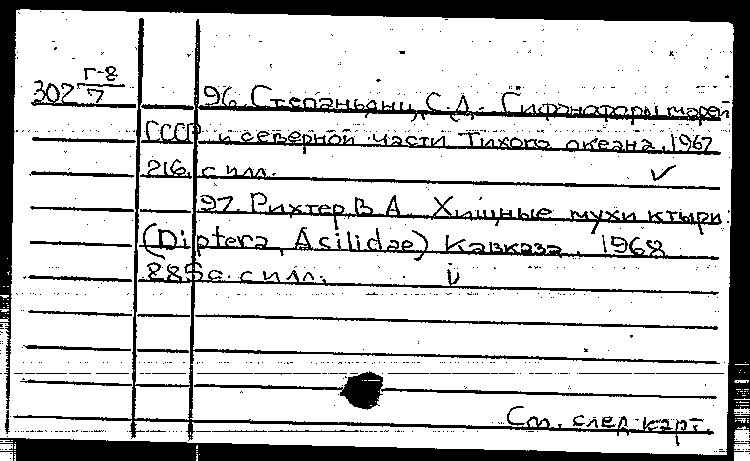 302 Г-8/7
96. Степаньянц, С.Д. - Сифонофоры морей
СССР и северной части Тихого океана. 1967
216. с илл.
97. Рихтер В А Хищные мухи ктыри
(Diptera, Asilidae) Кавказа. 1968
285 с. с илл.
См. след. карт.